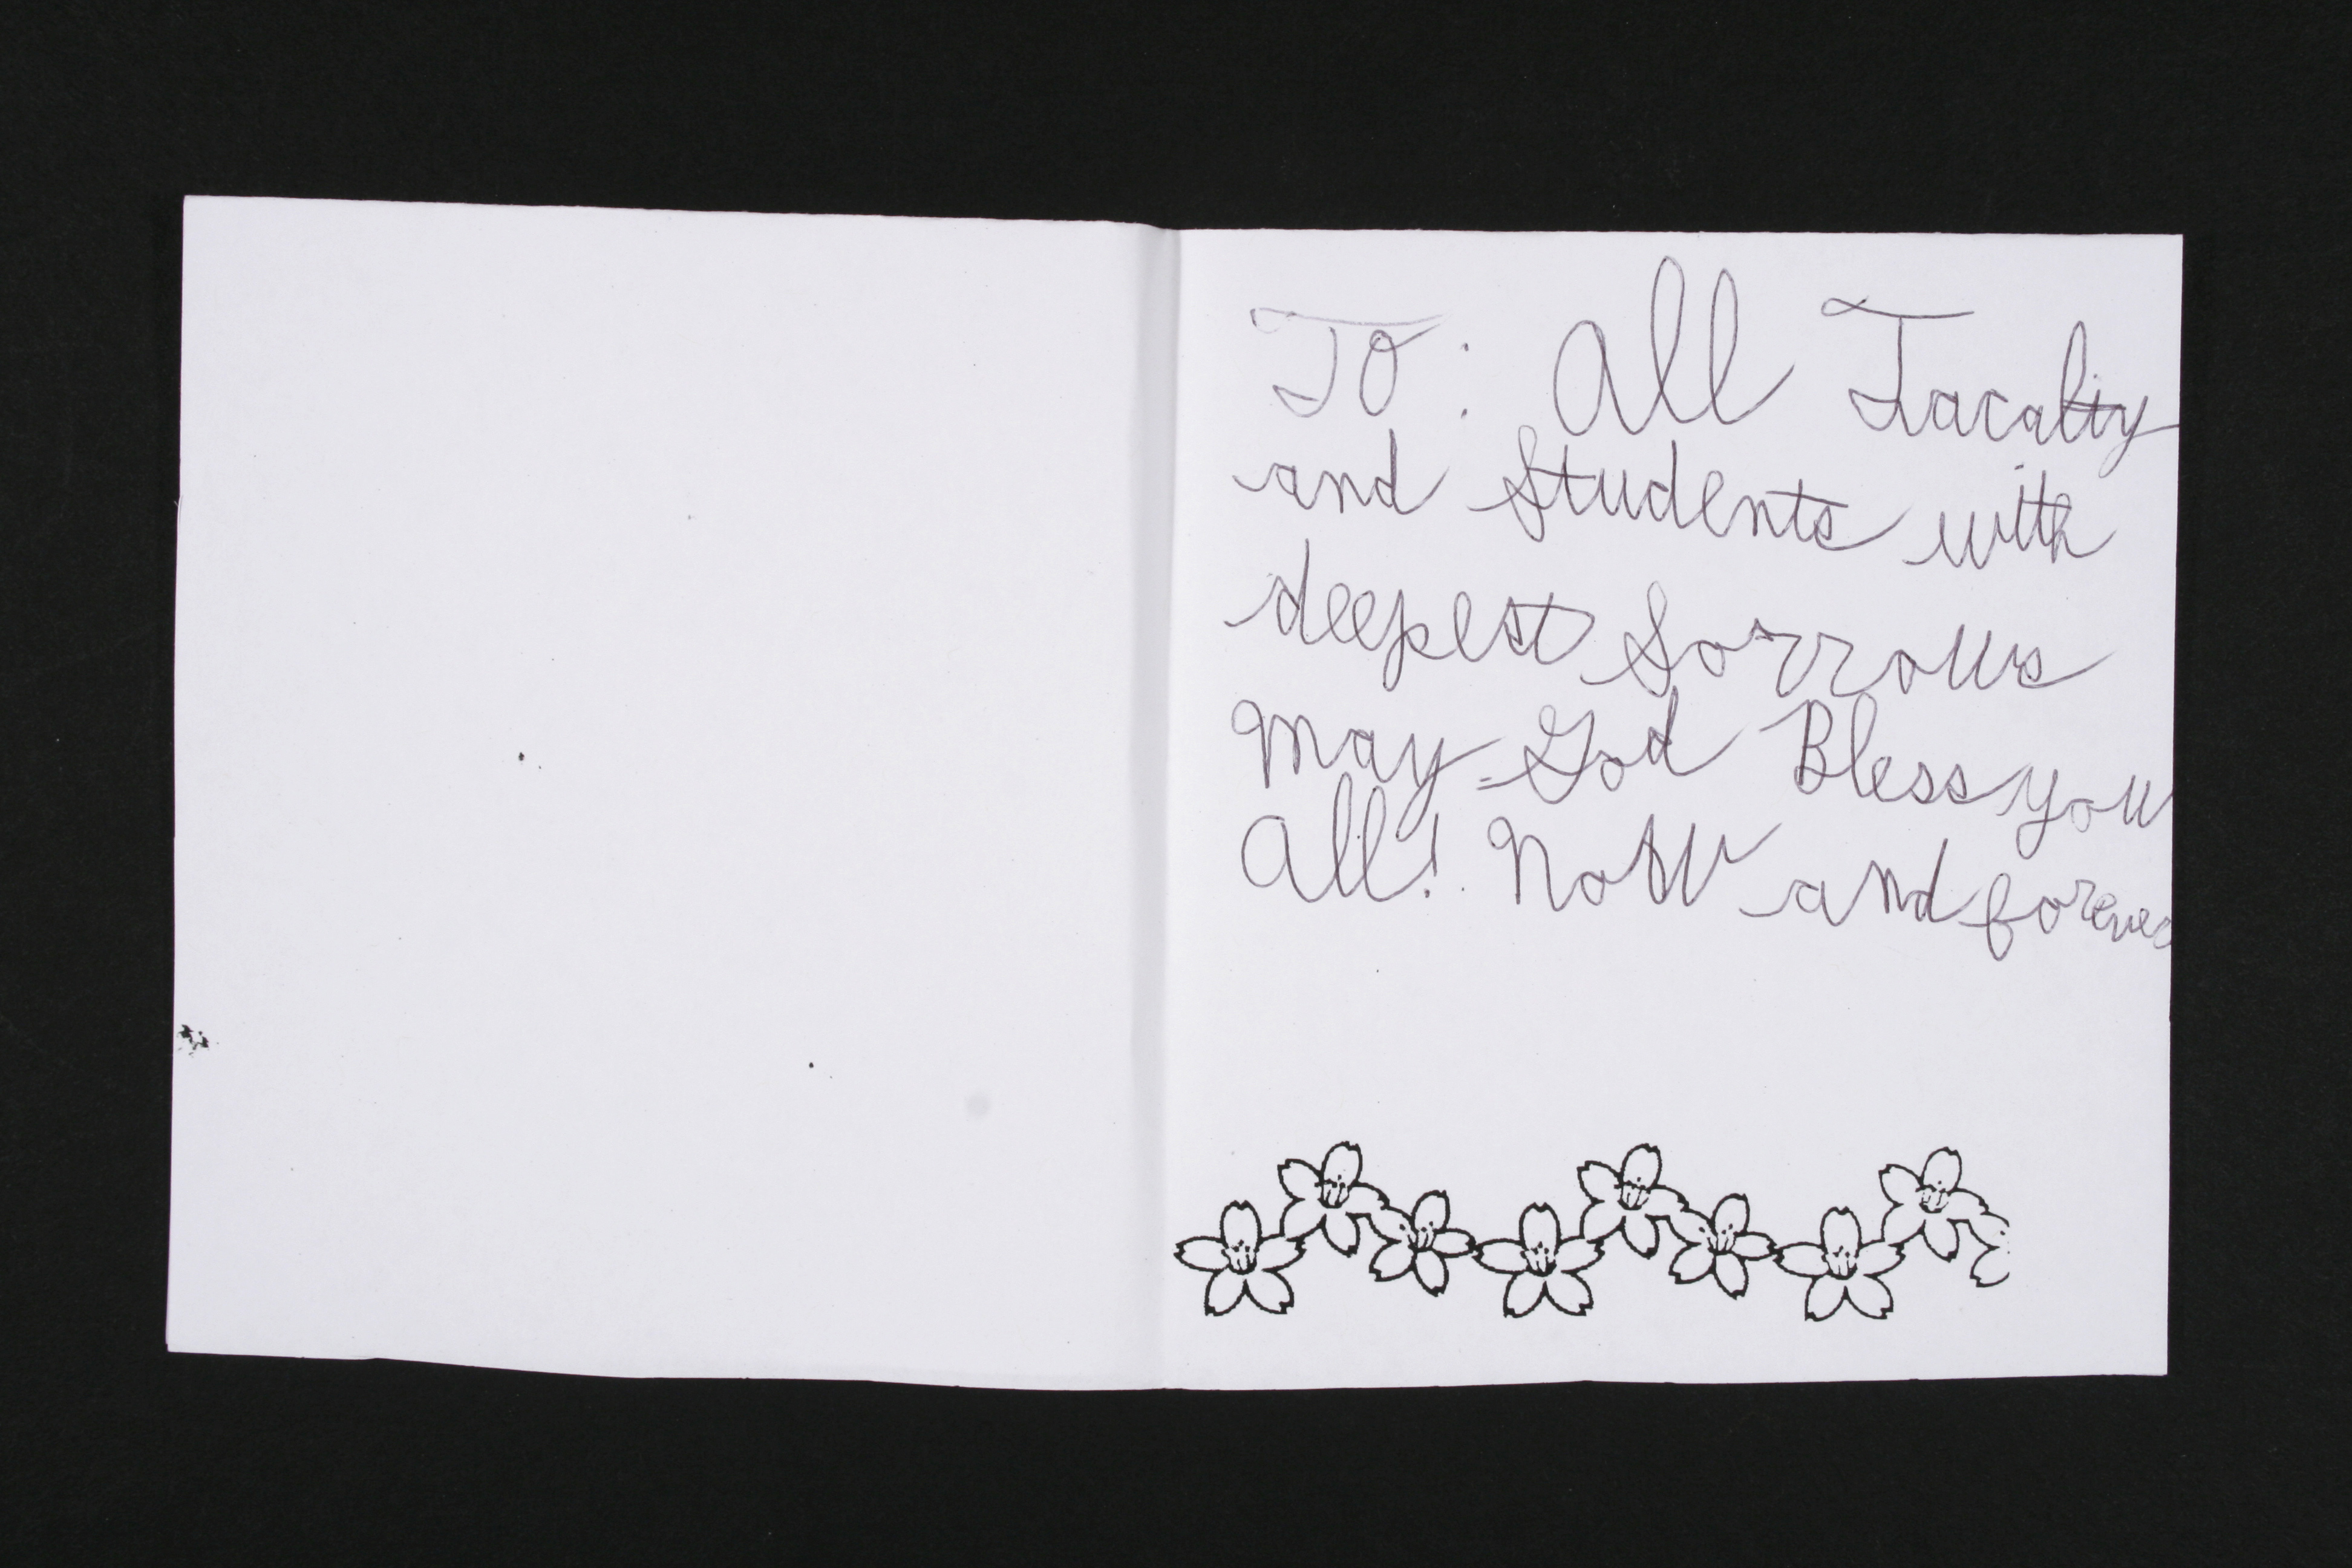 To: All Facalty
and Students with
deepest Sorrows
May God Bless you
All! Now and forever